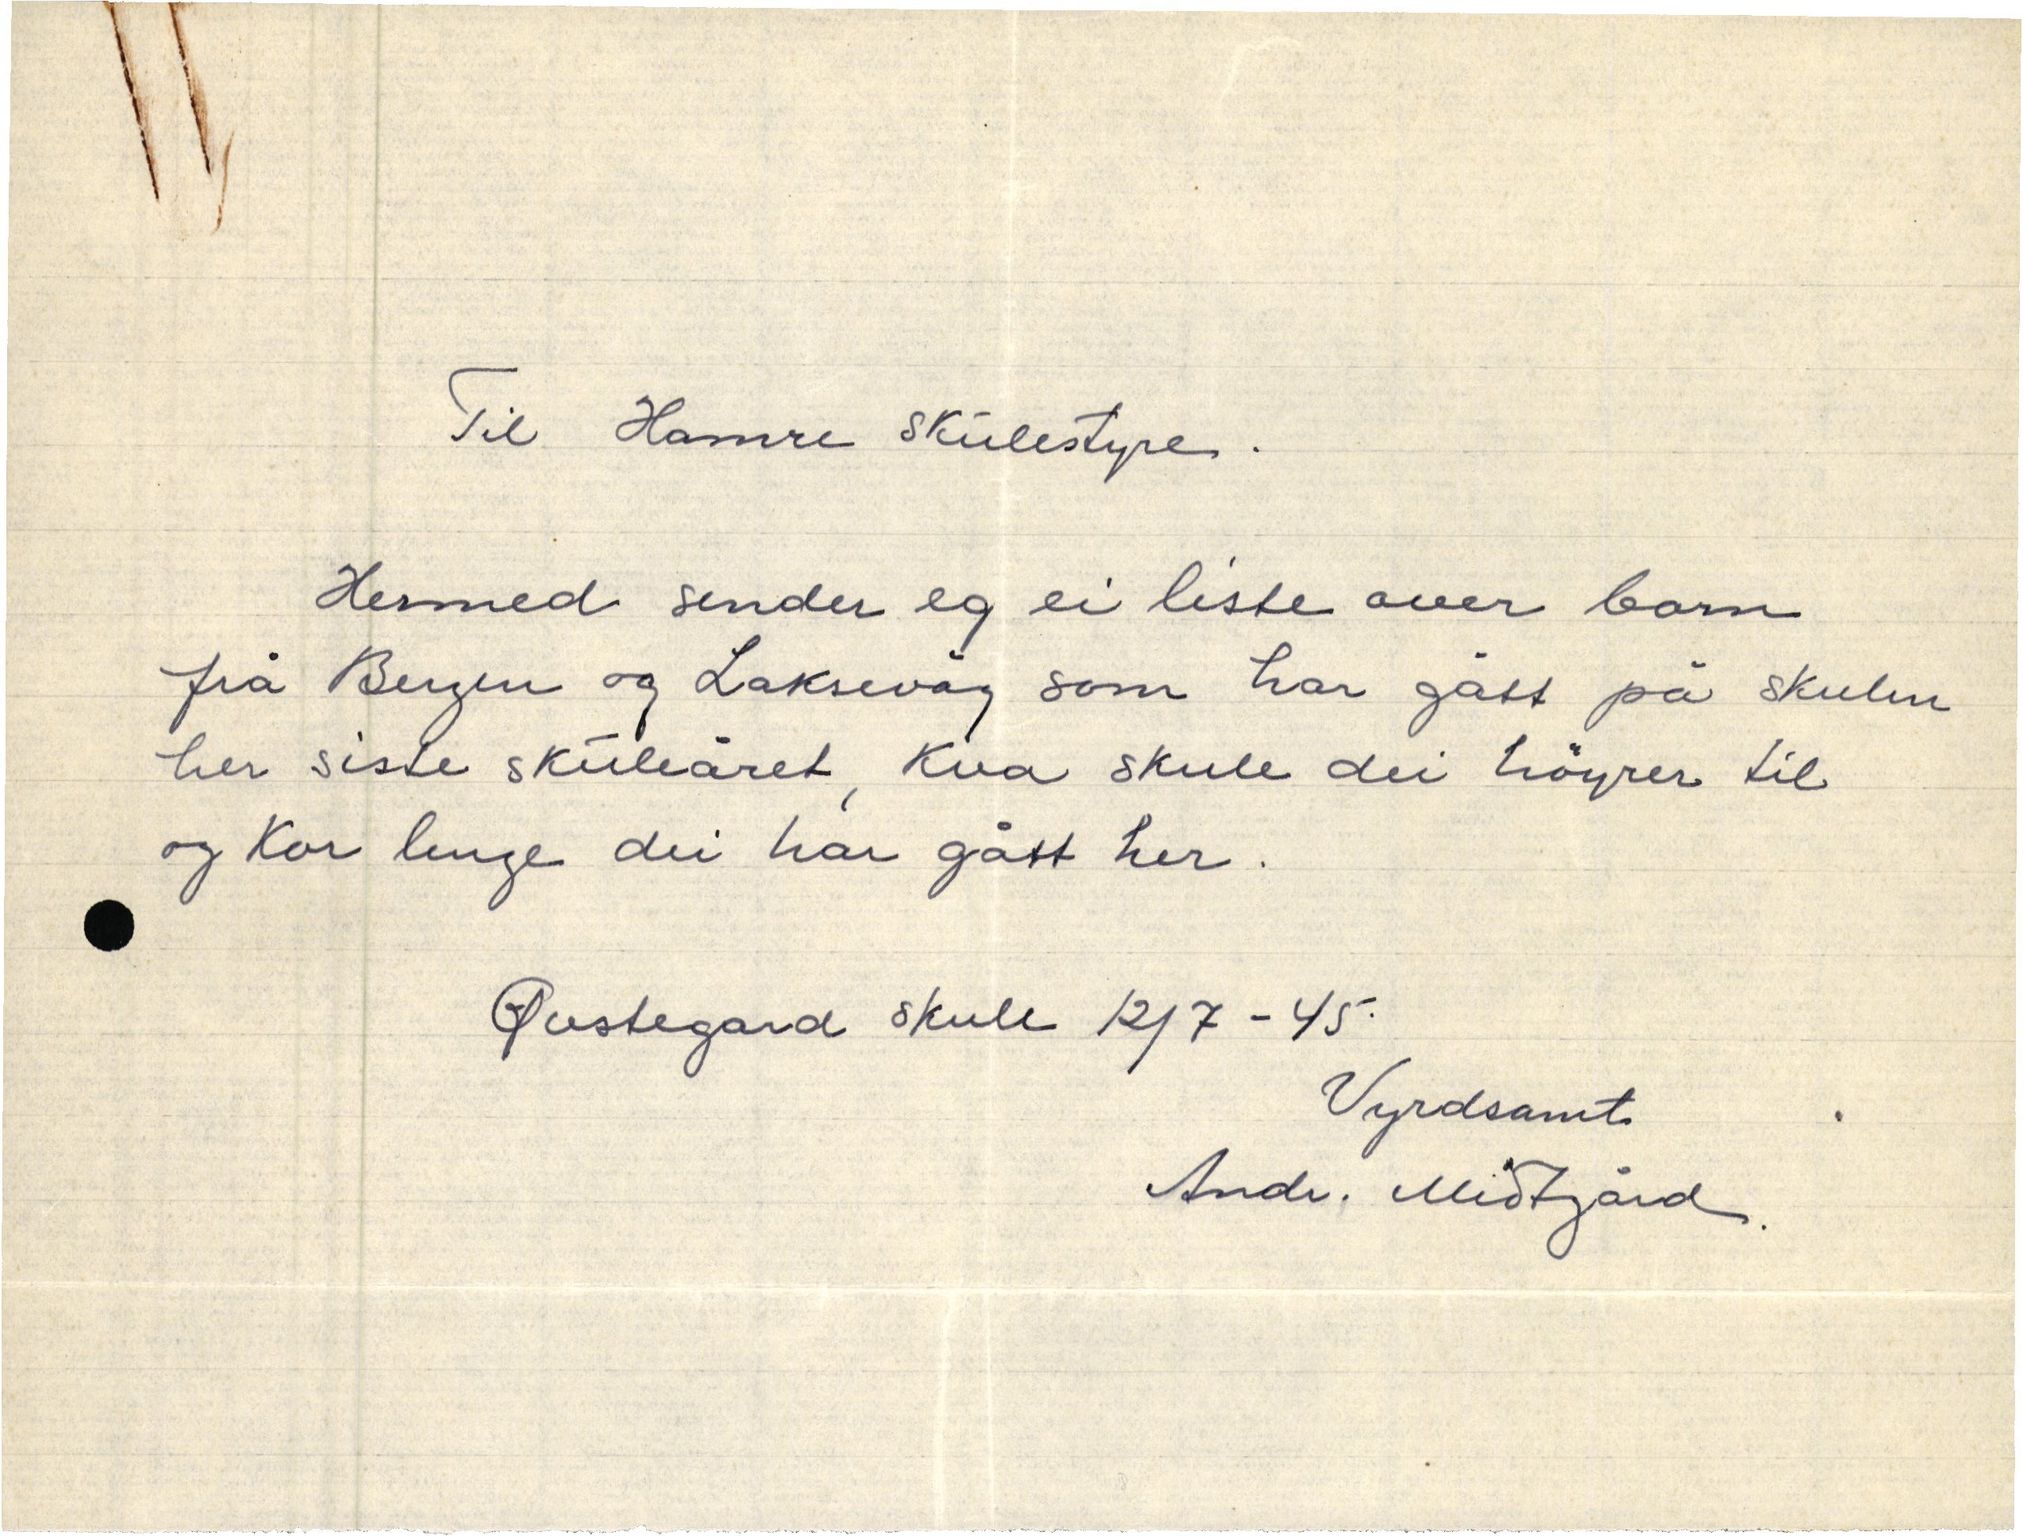 Til Hamre skulestyre.
Hermed sender eg ei liste over born
frå Bergen og Laksevåg som har gått på skulen
her siste skuleåret, kva skule dei höyrer til
og kor lenge dei har gått her.
Øvstegard skule 12/7-45.
Vyrdsamt
Andr. Midtgård.